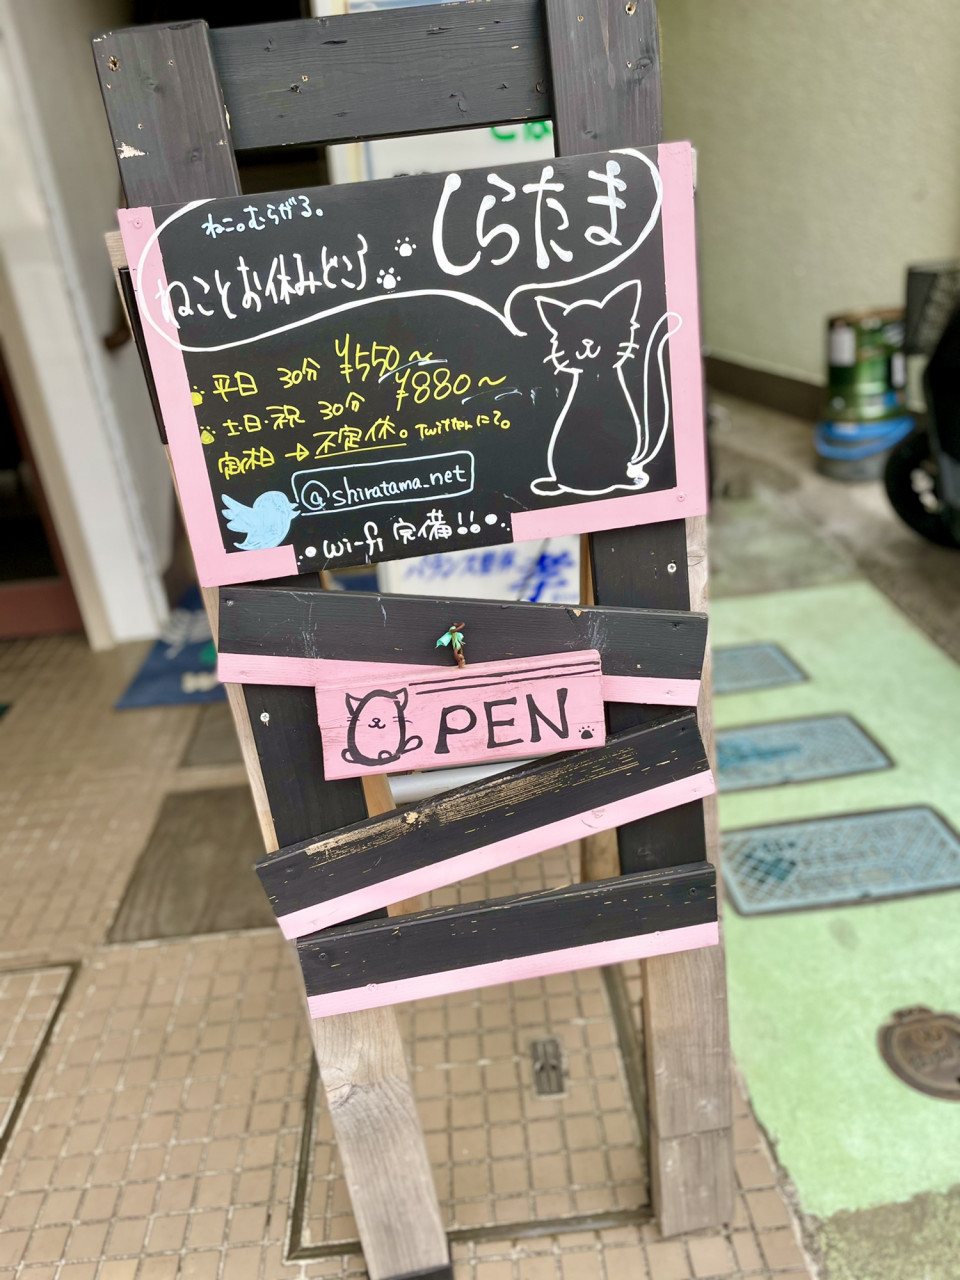 ねこ。むらがる。
しらたま
ねことお休みどころ
平日 30分 ¥550〜
土・日・祝 30分 ¥880〜
定休日→不定休。Twitterにて。
@shiratama_net
wi-fi 完備!!
OPEN